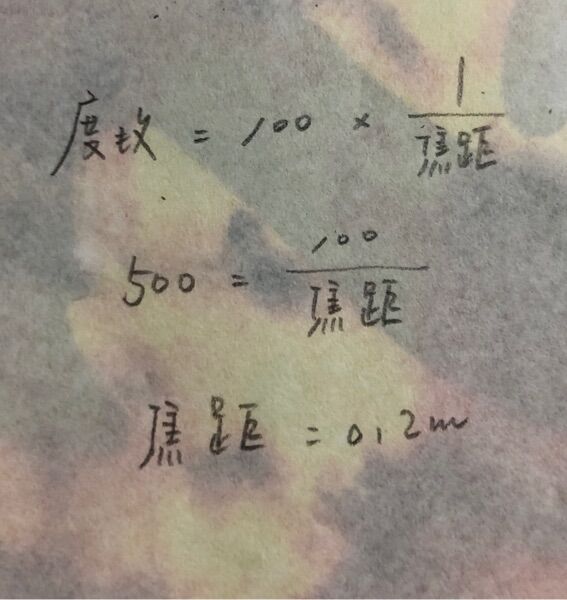 度数 = 100 × 1/焦距
500 = 100/焦距
焦距 = 0.2m